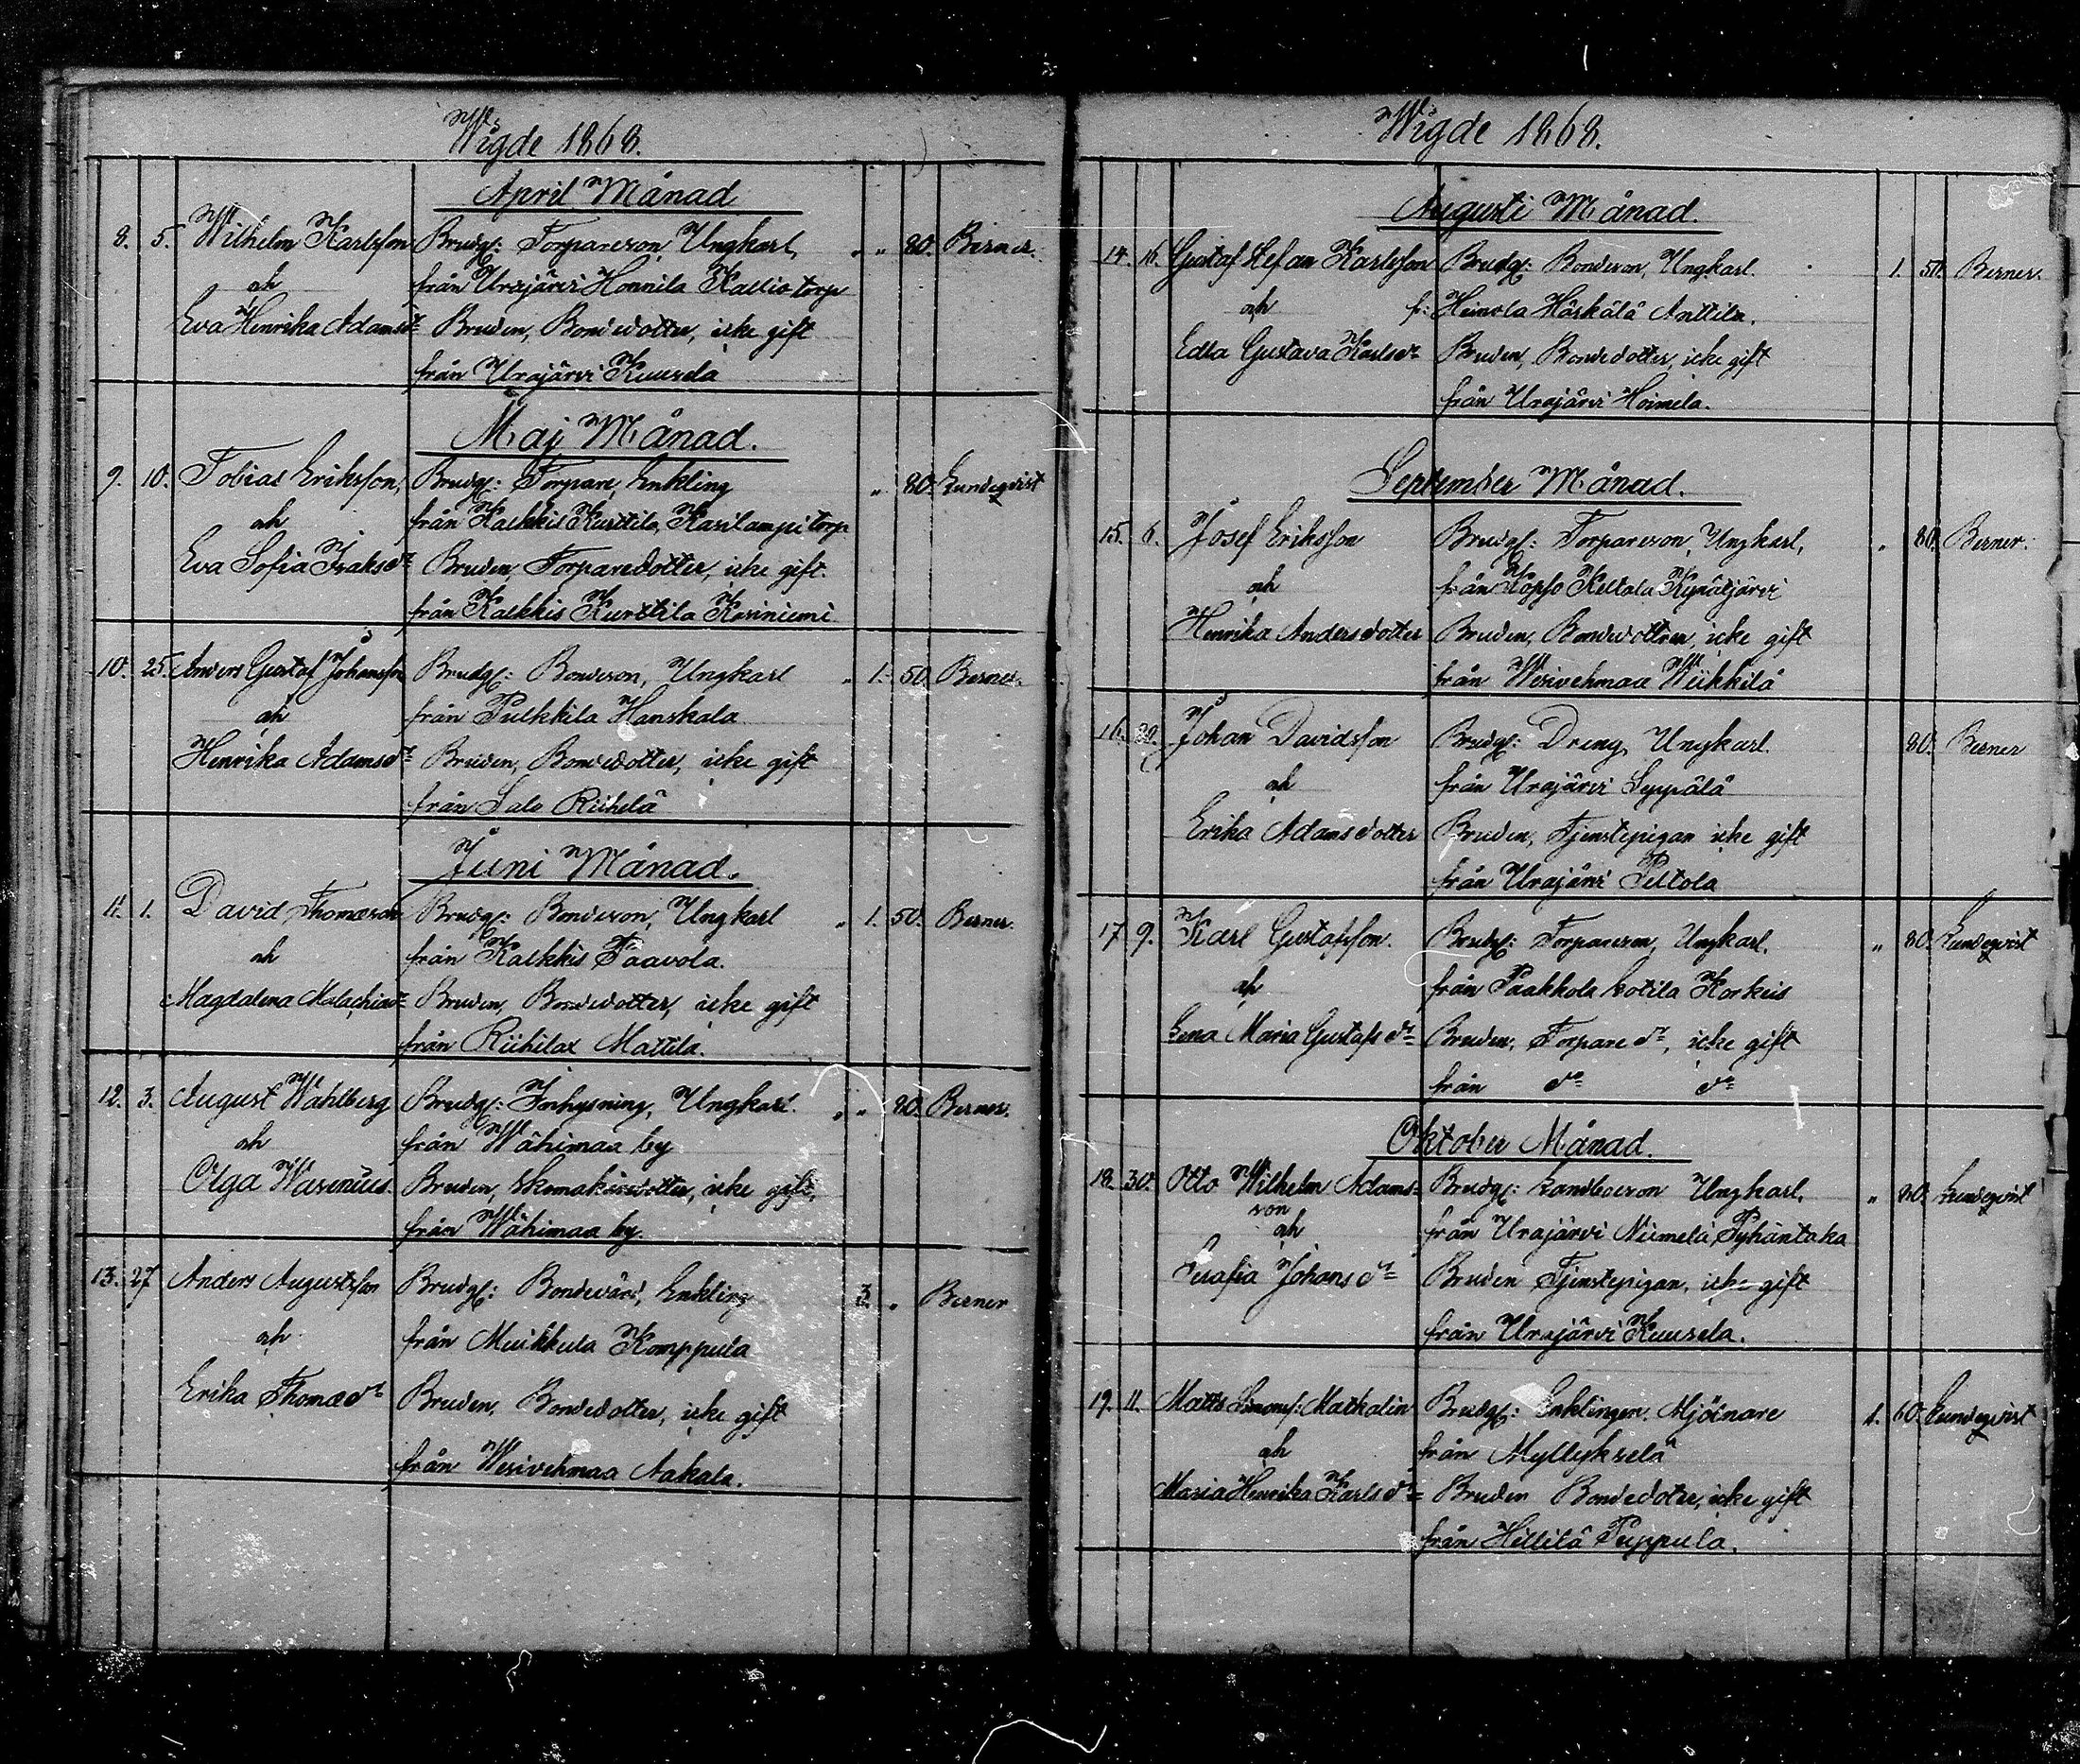 Wigde 1868.
April Månad
8. 5. Wilhelm Karlsson Brudg: Torpareson, Ungkarl, „ „ 80. Berner.
och från Urajärvi Honnila Kallio torp
Eva Henrika Adamsdr Bruden, Bondedotter, icke gift
från Urajärvi Kuusela
Maj Månad.
9. 10. Tobias Eriksson, Brudg: Torpare, Enkling „ 80. Lundeqvist
och från Kalkkis Kurttila, Karilampi torp
Eva Sofia Isaksdr Bruden, Torparedotter, icke gift.
från Kalkkis Kurttila Kariniemi
10. 25. Anders Gustaf Johansson Brudg: Bondeson, Ungkarl „ 1. 50. Berner.
och från Pulkkila Hanskala
Henrika Adamsdr Bruden, Bondedotter, icke gift
från Salo Riihelä
Juni Månad.
11. 1. David Thomæson Brudg: Bondeson, Ungkarl „ 1. 50. Berner.
och från Kalkkis Paavola.
Magdalena Malachiædr Bruden, Bondedotter, icke gift
från Riihilax Mattila.
12. 3. August Wahlberg Brudg: Inhysning, Ungkarl. „ „ 80. Berner.
och från Wähimaa by
Olga Wasenius. Bruden, Skomakaredotter, icke gift,
från Wähimaa by.
13. 27 Anders Augustsson Brudg: Bondevärd, Enkling 3. „ Berner
och från Muikkula Komppula
Erika Thomædr Bruden, Bondedotter, icke gift
från Wesivehmaa Aakala.
Wigde 1868.
Augusti Månad.
14. 16. Gustaf Stefan Karlsson Brudg: Bondeson, Ungkarl. 1. 50. Berner.
och f: Heinola Härkälä Anttila.
Edla Gustava Karlsdr Bruden, Bondedotter, icke gift
från Urajärvi Hoimela.
September Månad.
15. 6. Josef Eriksson Brudg: Torpareson, Ungkarl, „ 80. Berner.
och från Kopso Keltola
Henrika Andersdotter Bruden, Bondedottren, icke gift
från Wesivehmaa Weikkilä
16. Johan Davidsson Brudg: Dreng, Ungkarl. 80. Berner
och från Urajärvi Seppälä
Erika Adamsdotter Bruden, Tjenstepigan icke gift
från Urajärvi Peltola
17 9. Karl Gustafsson. Brudg: Torpareson, Ungkarl, „ 80. Lundeqvist
och från Paakkola Kotila Korkeis
Lena Maria Gustafsdr Bruden, Torpare dr, icke gift
från do do
Oktober Månad.
18. 30. Otto Wilhelm Adams= Brudg: Landboeson Ungkarl, „ 80. Lundeqvist
son
och från Urajärvi Niemelä, Pyhäntaka
Serafia Johansdr Bruden Tjenstepigan, icke gift
från Urajärvi Kuusela.
19. 11. Matts Simonss: Matkalin Brudg: Enklingen, Mjölnare 1. 60. Lundeqvist
och från Myllykselä
Maria Henrika Karlsdr Bruden Bondedoter, icke gift
från Hillilä Peippula.